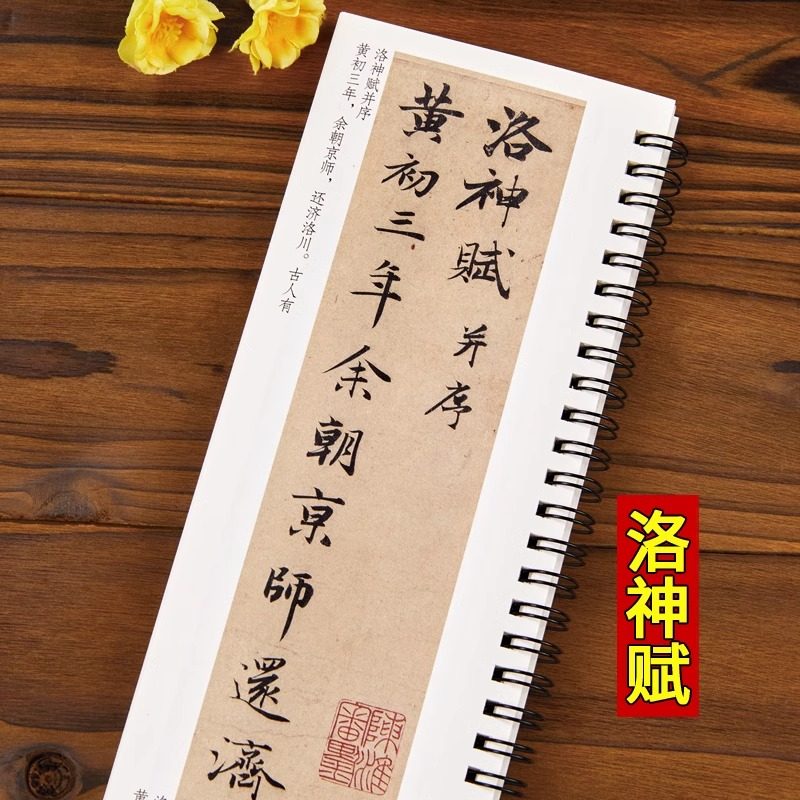 洛神賦并序
黄初三年余朝京師還濟
洛神赋并序
黄初三年，余朝京师，还济洛川。古人有
洛神赋